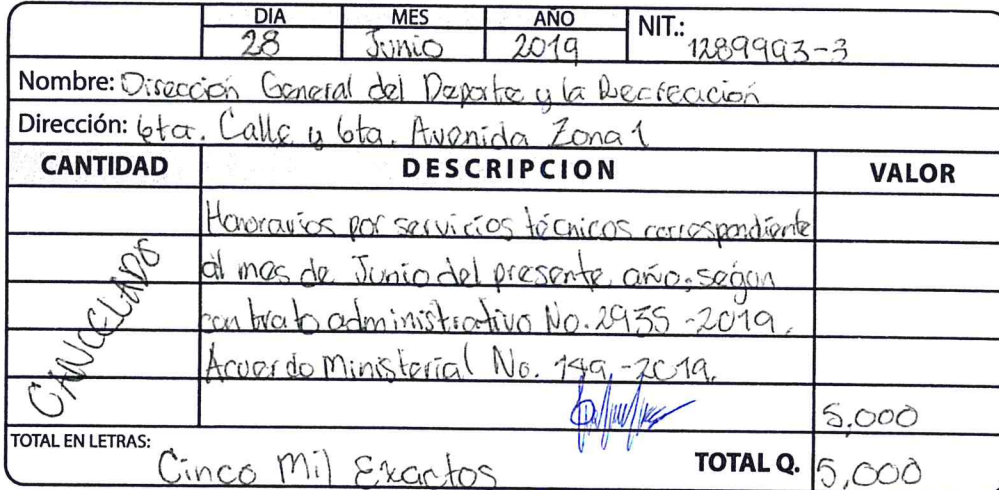 DIA MES AÑO NIT.:
28 Junio 2019 1289993-3
Nombre: Dirección General del Deporte y la Recreación
Dirección: 6ta. Calle y 6ta. Avenida Zona 1
CANTIDAD DESCRIPCION VALOR
Honoravios por servicios técnicos correspondiente
al mes de Junio del presente año, según
contrato administrativo No. 2935-2019,
Acuerdo Ministerial No. 149-2019.
CANCELADO
5,000
TOTAL EN LETRAS:
Cinco Mil Exactos TOTAL Q. 5,000